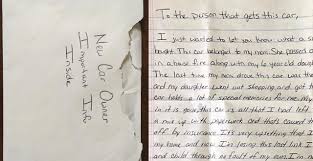 New Car Owner
Important Info
Inside
To the person that gets this car,
I just wanted to let you know what a
bought. This car belonged to my mom. She passed
in a house fire along with my 6 year old daug
The last time my mom drove this car was the
and my daughter went out shopping and got
car holds a lot of special memories for me. My
in it is gone, this car is all that I had left.
a mix up with paperwork and that's caused
off by insurance. It's very upsetting that I
my home and now I'm losing this last link I
and child through no fault of my own. I